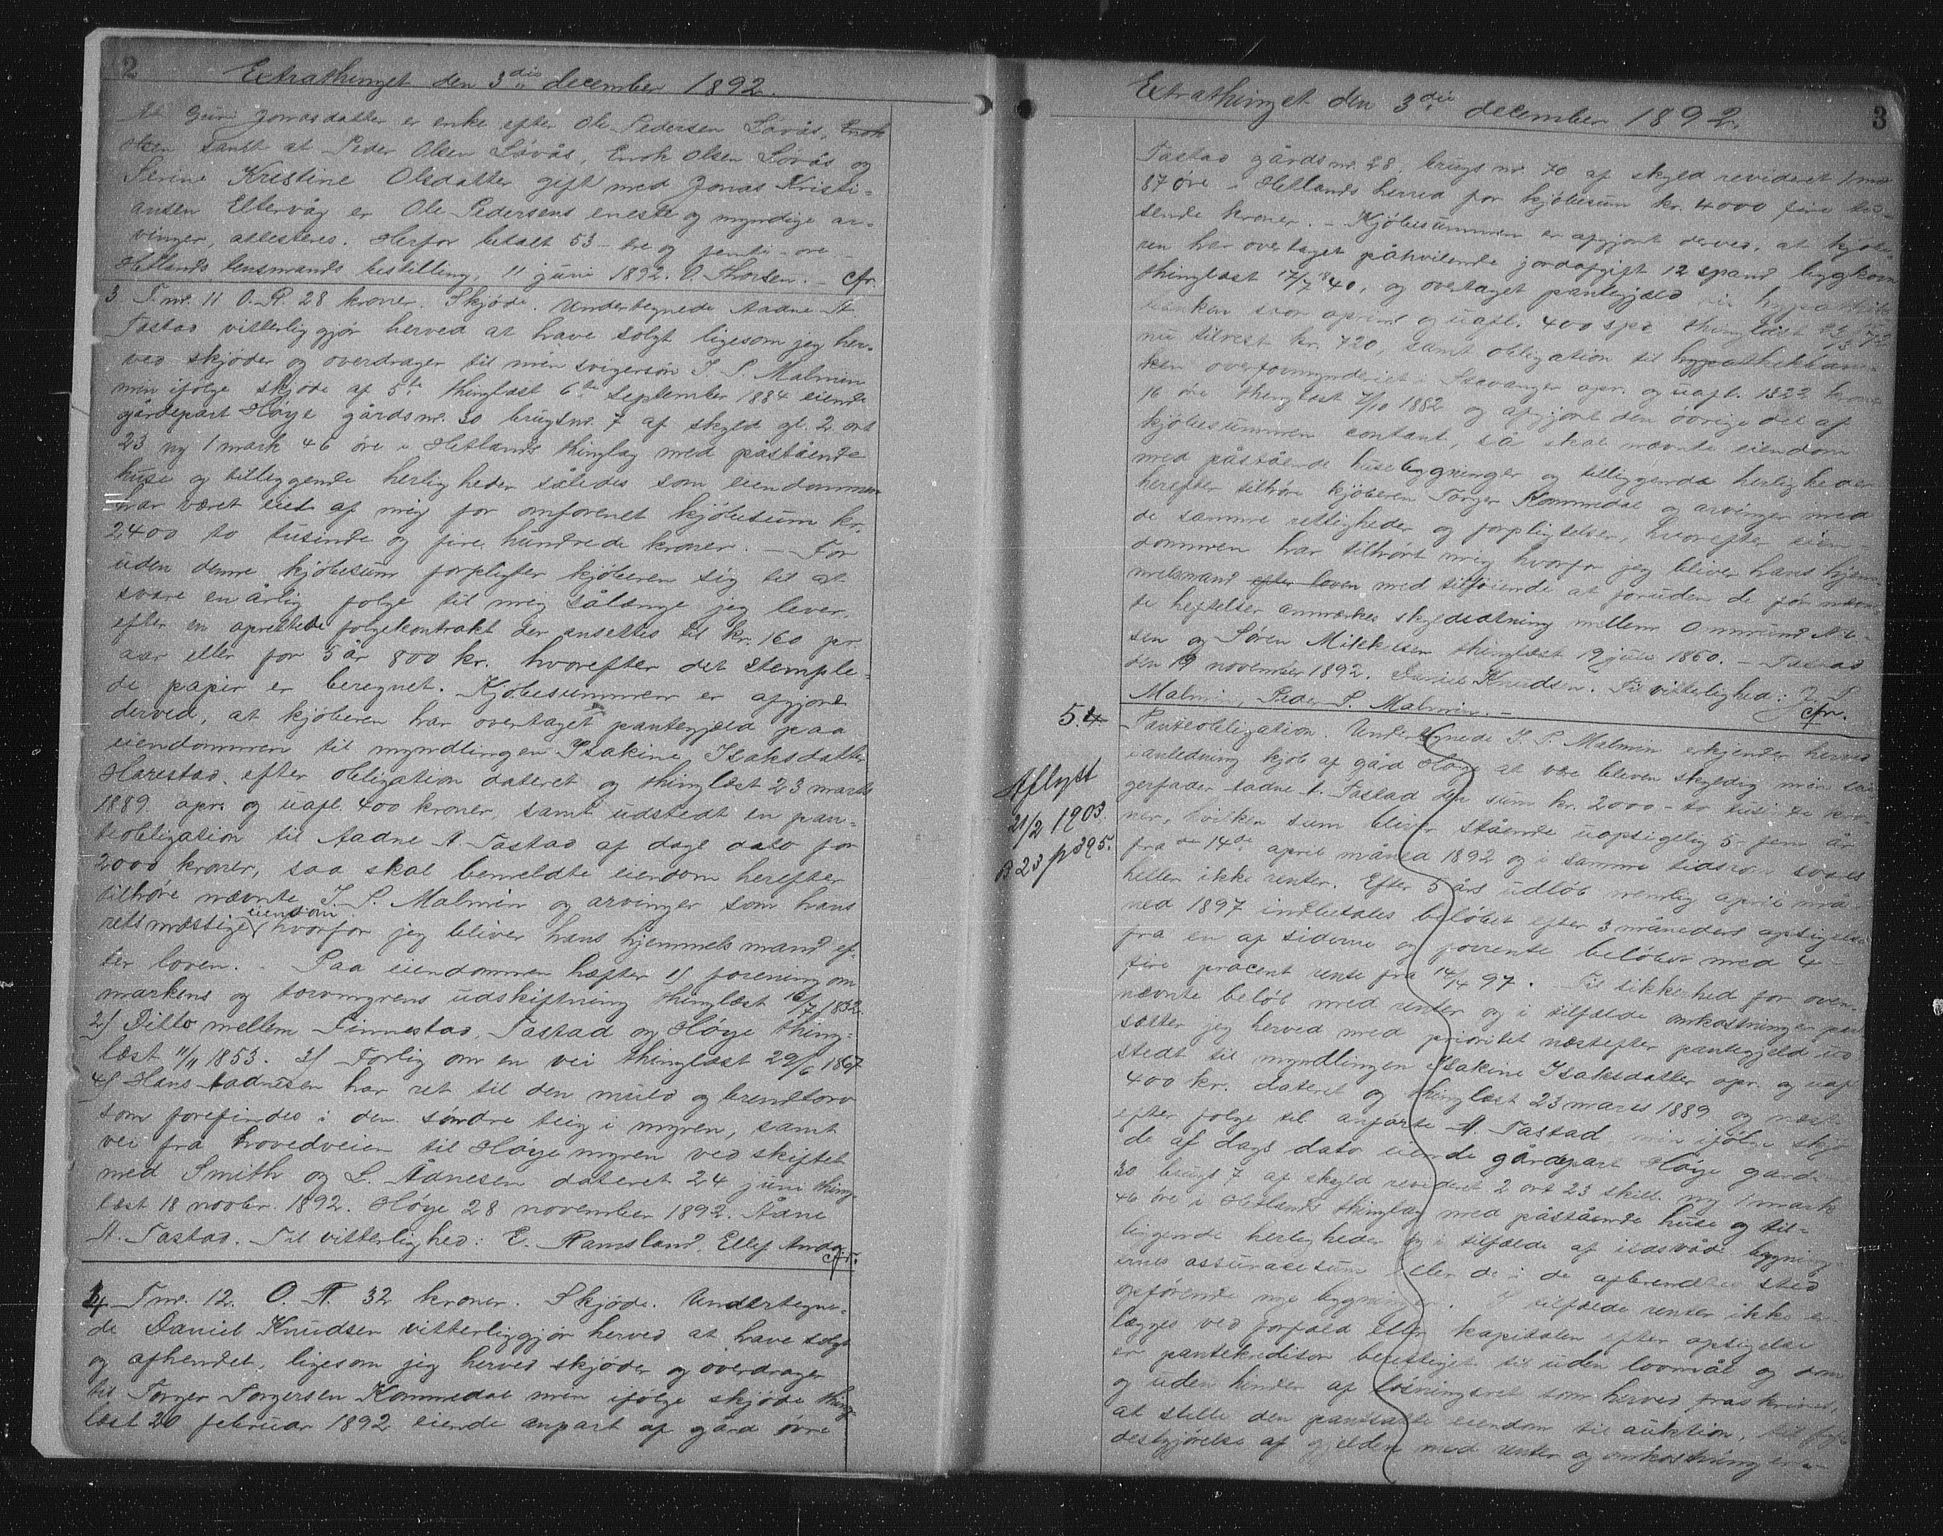 2
Extrathinget den 3die december 1892.
At Guri Jonasdatter er enke efter Ole Pedersen Løvås, Enok
Olsen samt at Peder Olsen Løvås, Enok Olsen Løvås og
Serine Kristine Olsdatter gift med Jonas Kristi-
ansen Eltervåg er Ole Pedersens eneste og myndige ar-
vinger, attesteres. Herfor betalt 53 - tre og femti - øre
Hetlands lensmands bestilling, 11 juni 1892. O. Thorsen. - cfr.
3 Tnr. 11 O.P. 28 kroner. Skjøde. Undertegnede Aadne A.
Tastad vitterliggjør herved at have solgt ligesom jeg her-
ved skjøder og overdrager til min svigersøn I. S. Malmin
min ifølge skjøde af 5te thinglæst 6te September 1884 eiende
gårdepart Høye gårdsnr. 30 brugsnr. 7 af skyld gl. 2 ort
23 ny 1 mark 46 øre i Hetlands thinglag med påstående
huse og tilliggende herligheder således som eiendommen
har været eiet af mig for omforenet kjøbesum kr.
2400 to tusinde og fire hundrede kroner. - For
uden denne kjøbesum forpligter kjøberen sig til at
svare en årlig følge til mig sålænge jeg lever,
efter en oprettede følgekontrakt der ansettes til kr. 160 pr.
aar eller for 5 år 800 kr. hvorefter det stemple-
de papir er beregnet. Kjøbesummen er afgjort
derved, at kjøberen har overtaget pantegjeld paa
eiendommen til myndlingen Isakine Isaksdatter
Harestad efter obligation dateret og thinglæst 23 marts
1889 opr. og uafl. 400 kroner, samt udstedt en pan-
teobligation til Aadne A Tastad af dags dato for
2000 kroner, saa skal bemeldte eiendom herefter
tilhøre nævnte I. S. Malmin og arvinger som hans
retsmæssige eiendom hvorfor jeg bliver hans hjemmelsmand ef-
ter loven. - Paa eiendommen hæfter 1/ forening om
markens og torvmyrens udskiftning thinglæst 16/7 1832.
2/ Ditto mellem Finnestad, Tastad og Høye thing-
læst 11/11 1853. 3/ Forlig om en vei thinglæst 29/6 1867
4/ Hans Aadnesen har ret til den muld og brendtorv
som forefindes i den søndre teig i myren, samt
vei fra hovedveien til Høye myren ved skiftet
med Smith og L. Ådnesen dateret 24 juni thing-
læst 18 novbr. 1892. Høye 28 november 1892. Ådne
A. Tastad. Til vitterlighed: E. Ramsland, Ellef
cfr.
4 Tnr. 12. O. P. 32 kroner. Skjøde. Undertegne-
de Daniel Knudsen vitterliggjør herved at have solgt
og afhendet, ligesom jeg herved skjøder og overdrager
til Torger Torgersen Kommedal min ifølge skjøde thing-
læst 20 februar 1892 eiende anpart af gård øvre
3
Extrathinget den 3die december 1892.
Tastad gårdsnr. 28, brugsnr. 70 af skyld revideret 1 mark
87 øre i Hetlands herred for kjøbesum kr. 4000 fire tu-
sende kroner. - Kjøbesummen er afgjort derved, at kjøbe-
ren har overtaget påhvilende jordafgift 12 spand bygkorn
thinglæst 17/7 1840, og overtaget pantegjeld til hypothek-
banken stor oprind. og uafl. 400 spd. thinglæst
nu tilrest kr. 720, samt obligation til hypothekban-
ken overformynderiet i Stavanger opr. og uafl. 1322 kroner
16 øre thinglæst 7/10 1882 og afgjort den øvrige del af
kjøbesummen contant, så skal nævnte eiendom
med påstående husebygninger og tilliggende herligheder
herefter tilhøre kjøberen Torger Kommedal og arvinger med
de samme rettigheder og forpligtelser, hvorefter eien-
dommen har tilhørt mig hvorfor jeg bliver hans hjem-
melsmand efter loven med tilføiende at foruden de før nævn-
te heftelser anmærkes skylddelning mellem Ommund
sen og Søren Mikkelsen thinglæst 19 juli 1860. - Tastad
den 19 november 1892. Daniel Knudsen. Til vitterlighed: I. S.
Malmin, Peder S. Malmin. - cfr.
5.4 Panteobligation. Undertegnede I. S. Malmin erkjender herved
i anledning kjøb af gård Høye at være bleven skyldig min svi-
gerfader Aadne A. Tastad den sum kr. 2000 - to tusinde kro-
ner, hvilken sum bliver stående uopsigelig 5 - fem år
fra de 14de april måned 1892 og i samme tidsrum svares
heller ikke renter. Efter 5 års udløb nemlig april må-
ned 1897 indbetales beløbet efter 3 måneders opsigelse
fra en af siderne og forrente beløbet med 4 -
fire procent rente fra 14/4 97. Til sikkerhed for oven-
nævnte beløb med renter og i tilfælde omkostninger pant-
sætter jeg herved med prioritet næstefter pantegjeld ud-
stedt til myndlingen Isakine Isaksdatter opr. og uafl.
400 kr. dateret og thinglæst 23 marts 1889 og næst-
efter følge til anførte A Tastad, min ifølge skjø-
de af dags dato eiende gårdepart Høye gårds-
30 brugs 7 af skyld revideret 2 ort 23 skill. ny 1 mark
46 øre i Hetlands thinglag med påstående huse og til-
liggende herligheder og i tilfælde af ildsvåde bygning-
ernes assurancesum eller de i de afbrendtes sted
opførende nye bygninger. I tilfælde renter ikke er-
lægges ved forfald eller kapitalen efter opsigelse
er pantekreditor berettiget til uden lovmål og dom
og uden hinder af løsningsret som herved fraskrives,
at stille den pantsatte eiendom til auktion, til fyl-
destgjørelse af gjelden med renter og omkostninger
Aflyst
21/2 1903.
B 23 p 395.